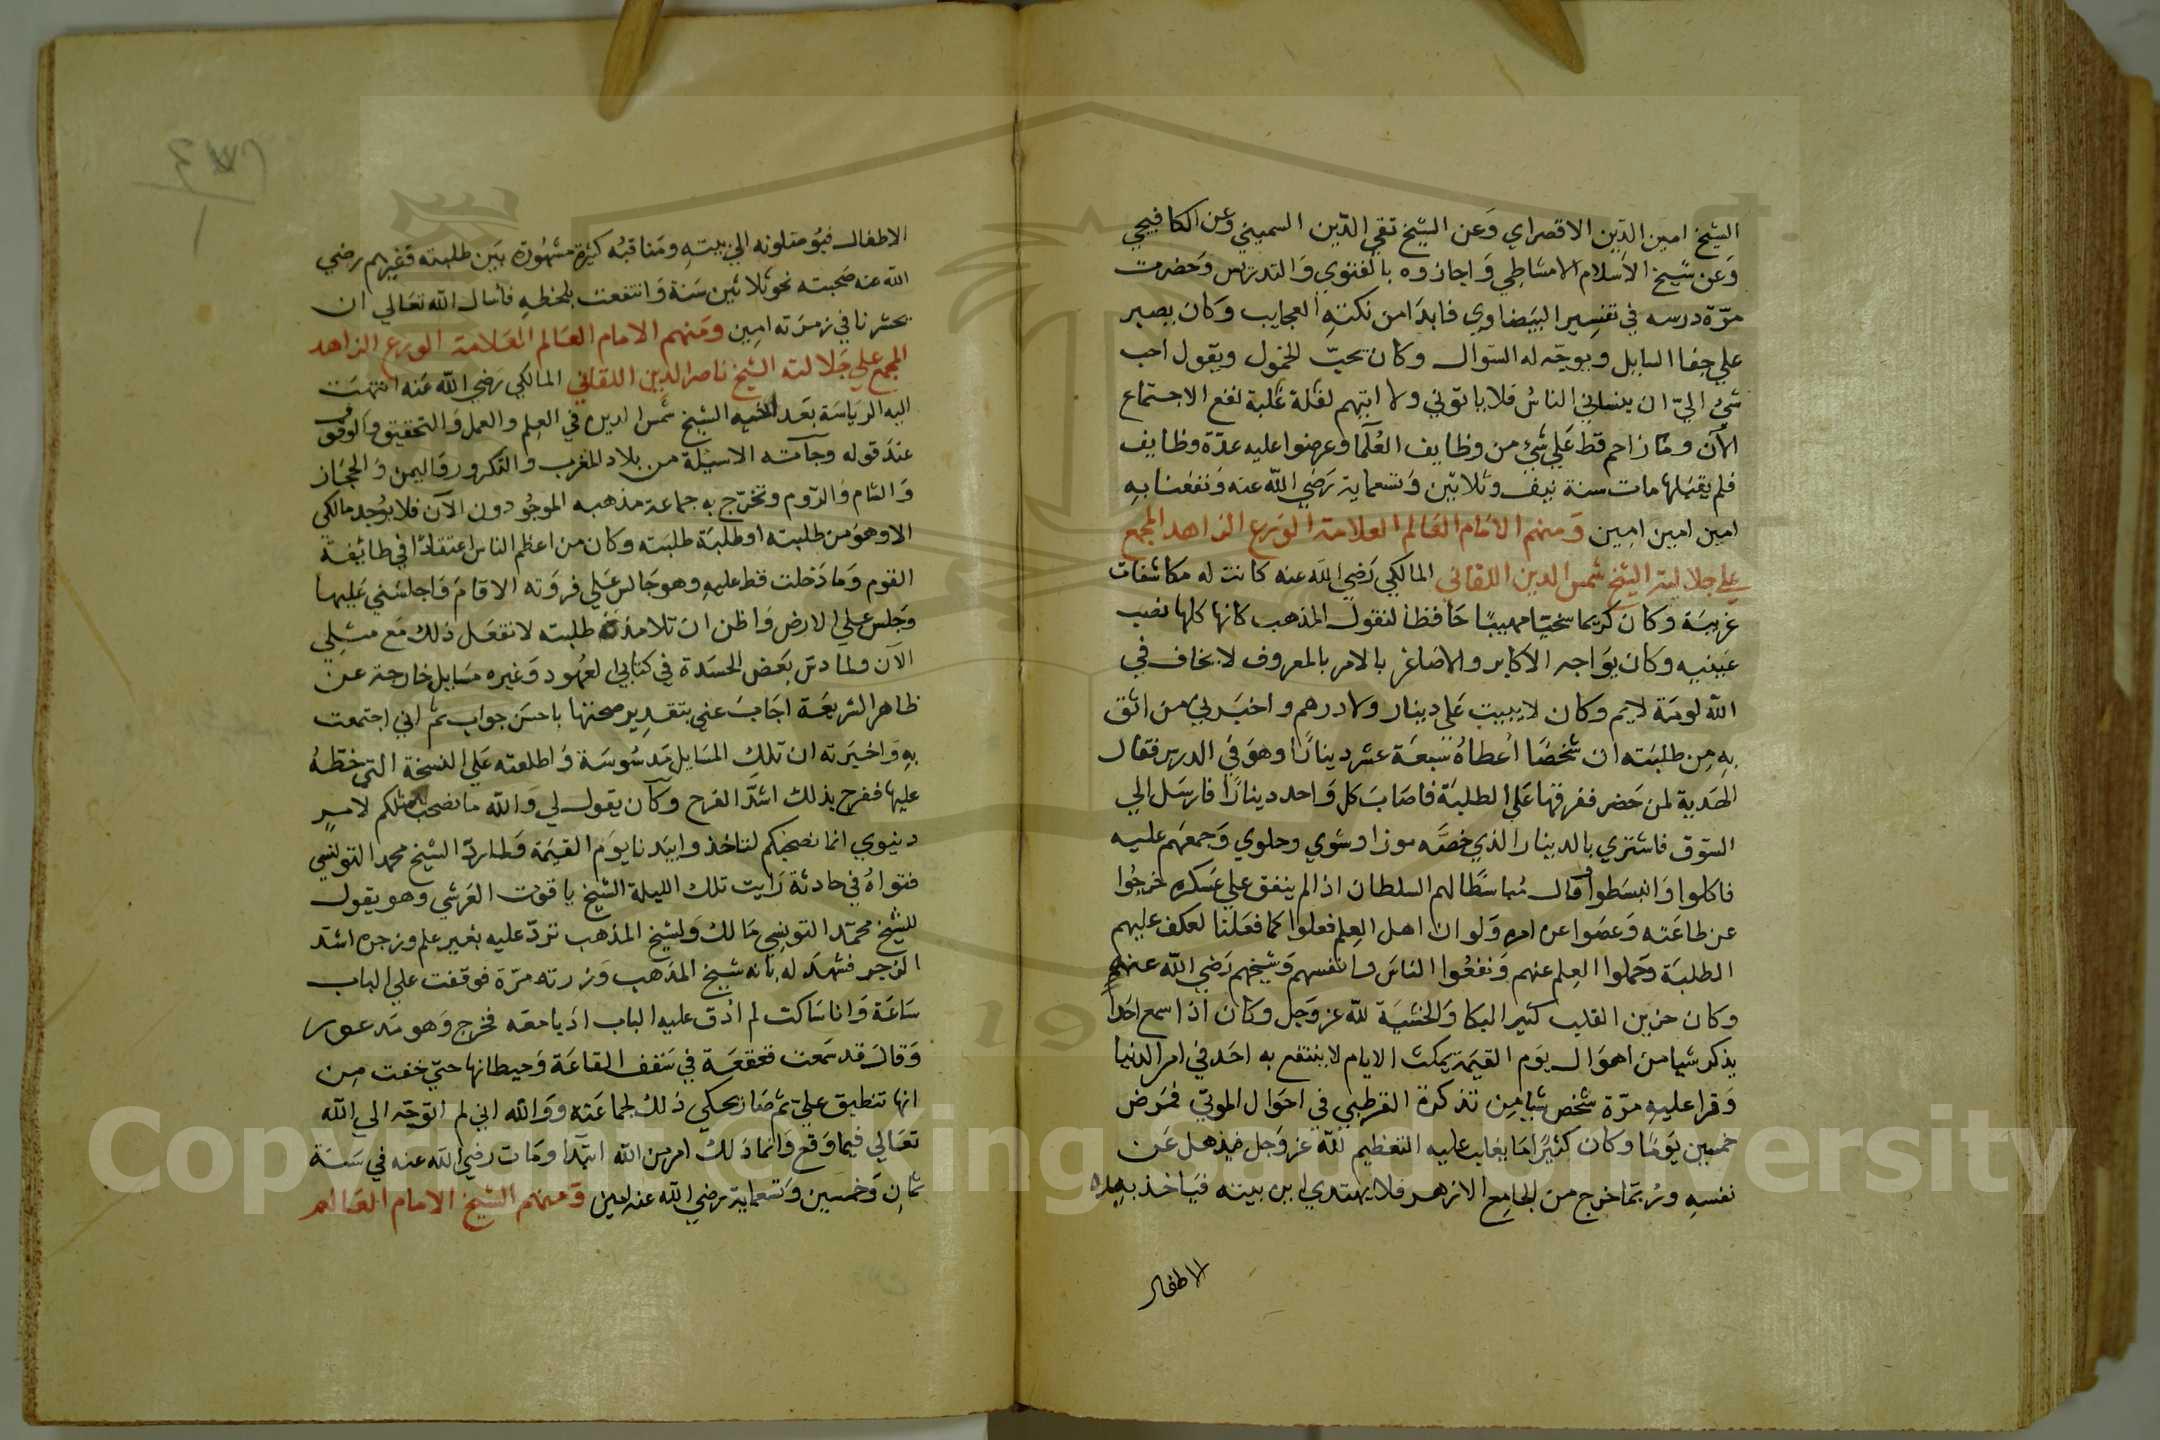 الشيخ امين الدين الاقصراي وَعن الشيخ تقي الدّين السميني وعن الكافيجي
وَعن شيخ الاسلام الامشاطي وَاجازوه بالفتوي وَالتدريس وَحضرت
مرّة درسه في تفسير البيضاوي فابدَا من نكته العجايب وَكان يصبر
علي جفا السايل ويوجّه له السوال وكان يحبّ الخمول ويقول احب
شئ اليّ ان ينساني الناسُ فلا ياتوني ولا اتيهم لقلة غلبة نفع الاجتماع
الآن ومَا زاحم قط عَلي شئ من وظايف العُلما وعرضوا عليه عدّة وظايف
فلم يقبَلها مات سنة نيف وثلاثين وَتسعماية رَضي اللّه عنه وَنفعنا بهِ
امين امين امِين وَمنهم الامَام العَالم العلامة الوَرع الزاهد المجمع
علي جلالته الشيخ شمس الدين اللقاني المالكي رَضي اللّه عنه كانت له مكاشفات
غريبَة وكان كريما سخيّا مهيبًا حَافظا لنقول المذهب كانها كلها نصب
عَينيه وكان يوَاجه الاكابر والاصَاغر بالامر بالمعروف لا يخاف في
اللّه لومَة لايم وكان لا يبيت عَلي دينار ولا درهم واخبَرني من اثق
بهِ من طلبَته ان شخصًا أعطاهُ سَبعَة عشر دينارًا وهوَ في الدرس فقال
الهَدية لمن حَضر ففرقها عَلي الطلبَة فاصَابَ كل وَاحد دينارًا فارسَل الي
السّوق فاشتري بالدينار الذي خصّه موزا وشوي وحلوي وَجمعَهم عليه
فاكلوا وَانبسَطوا وقال مُباسطًا لهم السلطان اذا لم ينفق علي عَسكره خرجُوا
عن طاعَته وَعصَوا عن امره وَلو ان اهل العِلم فعلوا كما فعَلنا لعكف عليهم
الطلبَة وَحملوا العِلم عنهم وَنفعُوا الناسَ وانفسهم وَشيخهم رَضي اللّه عنهم
وكان حزين القلب كثير البكا وَالخشيَة للّه عز وَجل وكان اذا سمع احَدًا
يذكر شيا من اهوَال يوَم القيمة يمكث الايام لا ينتفع به احَد في امر الدنيا
وَقرا عليهِ مرّة شخص شيا مِن تذكرة القرطبي في احوَال الموتي فمَرَض
خمسين يَومًا وكان كثيرًا مَا يغلب عليه التعظيم للّه عز وَجل فيذهل عَن
نفسهِ ورُبّما خرج من الجامِع الازهر فلا يهتدي لاين بيته فيَاخذ بيده
الاطفال
الاطفال فيوُصلونه الي بيتهِ ومنَاقبُه كثيرة مشهورَة بَين طلبته وَغيرهم رضي
اللّه عنه صَحبته نحو ثلاثين سَنة وَانتفعت بلحظهِ فاسال اللّه تعَالي ان
يحشرنا في زمرَته امِين ومَنهم الامام العَالم العَلامة الورع الزاهد
المجمع علي جَلالته الشيخ ناصر الدين اللقاني المالكي رَضي اللّه عَنه انتهَت
اليه الريَاسَة بعَد اخيه الشيخ شمس الدين في العِلم والعمل وَالتحقيق وَالوقوف
عنَد قوله وجآته الاسئلة من بلاد المغرب والتكرور وَاليمن وَالحجَاز
وَالشام وَالرّوم وتخرّج به جماعة مذهبه الموجُودون الآن فلا يوُجد مالكي
الا وهوَ من طلبته او طلبَة طلبَته وكان من اعظم الناس اعتقادًا في طائفة
القوم وَما دَخلت قط عليهِ وهو جَالس عَلي فروَته الا قامَ وَاجلسَني عَليها
وَجلس علي الارض وَاظن ان تلامذة طلبته لا تفعَل ذلك مَع مثلي
الآن ولما دسّ بعَض الحسَدة في كتابي العُهود وَغيره مسَايل خارجة عن
ظاهر الشريعَة اجَابَ عني بتقدِير صحتها باحسَن جواب ثم اني اجتمعت
بهِ وَاخبرَته ان تلك المسَايل مَدسُوسَة وَاطلعته عَلي النسخة التي خطهُ
عليها ففرح بذلك اشدّ الفرح وكان يقول لي وَاللّه ما نصحب مثلكم لامرٍ
دنيوي انما نصحبكم لتاخذوا بيَدنا يوَم القيمَة وَلما ردّ الشيخ محمد التونسي
فتواهُ في حادثة رَايت تلك الليلة الشيخ ياقوت العَرشي وهو يقول
للشيخ محمّد التونسي مَالكَ وَلشيخ المذهب تردّ عليه بغير علم وزجره اشدّ
الزجر فشهَد له بَانه شيخ المذهب وَزرته مرّة فوقفت علي الباب
سَاعَة وَانا سَاكت لم ادُق عليه الباب ادَبا معَه فخرج وَهو مَدعور
وَقالَ قد سَمعت قعقعَة في سَقف القاعَة وَحيطانها حتيّ خفت مِن
انها تنطبق عليّ ثم صَار يحكي ذلك لجماعَته وَوَاللّه اني لم اتوَجّه الي اللّه
تعَالي فيما وَقع وَانما ذَلك امر من اللّه ابتدا ومَات رضي اللّه عنه في سَنة
ثمانِ وَخمسين وَتسعماية رضي اللّه عنه امين وَمنهم الشيخ الامام العَالم
Copyright © King Saud University